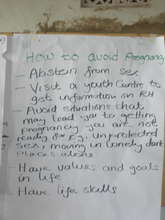 How to avoid Pregnancy
- Abstain from sex
- Visit a youth Centre to
get information on RH
- Avoid situations that
may lead you to getting
pregnancy you are not
ready for e.g. unprotected
sex, moving in lonely dark
places alone
- Have values and goals
in life
- Have life skills